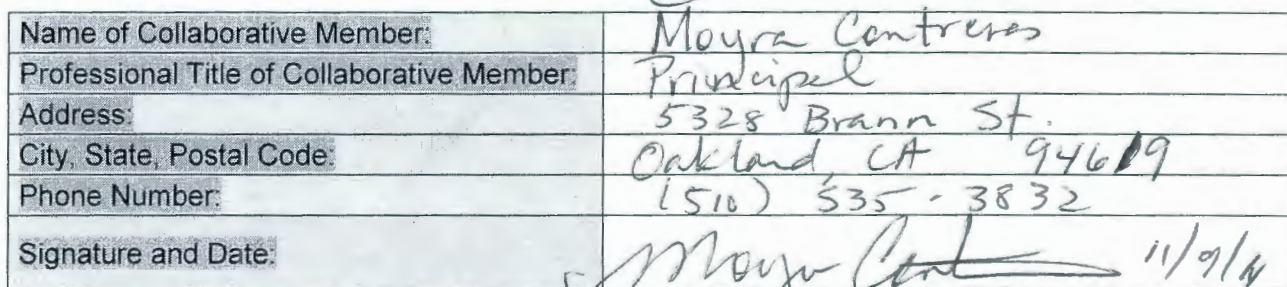 Name of Collaborative Member: Moyra Contreras
Professional Title of Collaborative Member: Principal
Address: 5328 Brann St.
City, State, Postal Code: Oakland, CA 94619
Phone Number: (510) 535-3832
Signature and Date: Moyra